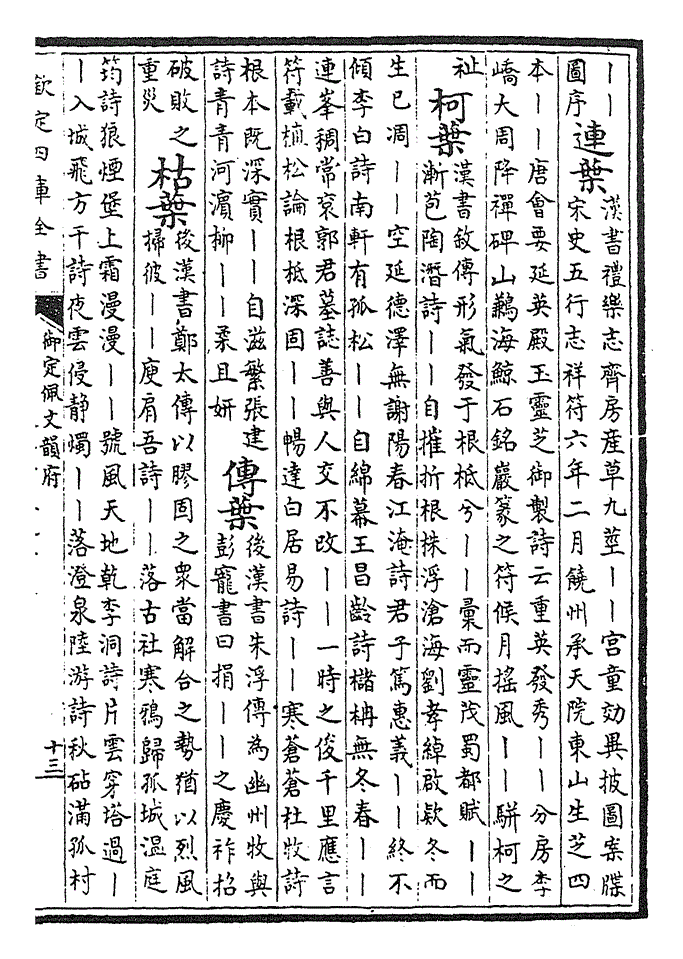 丨丨
圖序
連葉
漢書禮樂志齊房産草九莖丨丨宫童効異披圖案牒
宋史五行志祥符六年二月饒州承天院東山生芝四
本丨丨唐會要延英殿王靈芝御製詩云重英發秀丨丨分房李
嶠大周降禪碑山鶼海鯨石銘巖篆之符候月摇風丨丨駢柯之
祉
柯葉
漢書敘傳形氣發于根柢兮丨丨彚而靈茂蜀都賦丨丨
漸苞陶潛詩丨丨自摧折根株浮滄海劉孝綽啟欵冬而
生已凋丨丨空延德澤無謝陽春江淹詩君子篤惠義丨丨終不
傾李白詩南軒有孤松丨丨自綿幕王昌齡詩櫧柟無冬春丨丨
連峯稠常衮郭君墓誌善與人交不改丨丨一時之俊千里應言
符載植松論根柢深固丨丨暢達白居易詩丨丨寒蒼蒼杜牧詩
根本既深實丨丨自滋繁張建
詩青青河濵柳丨丨柔且妍
傳葉
後漢書朱浮傳為幽州牧與
彭寵書曰捐丨丨之慶祚招
破敗之
重災
枯葉
後漢書鄭太傳以膠固之衆當解合之勢猶以烈風
掃彼丨丨庾肩吾詩丨丨落古社寒鴉歸孤城温庭
筠詩狼煙堡上霜漫漫丨丨號風天地乾李洞詩片雲穿塔過丨
丨入城飛方干詩夜雲侵静燭丨丨落澄泉陸游詩秋砧滿孤村
欽定四庫全書
御定佩文韻府
十三